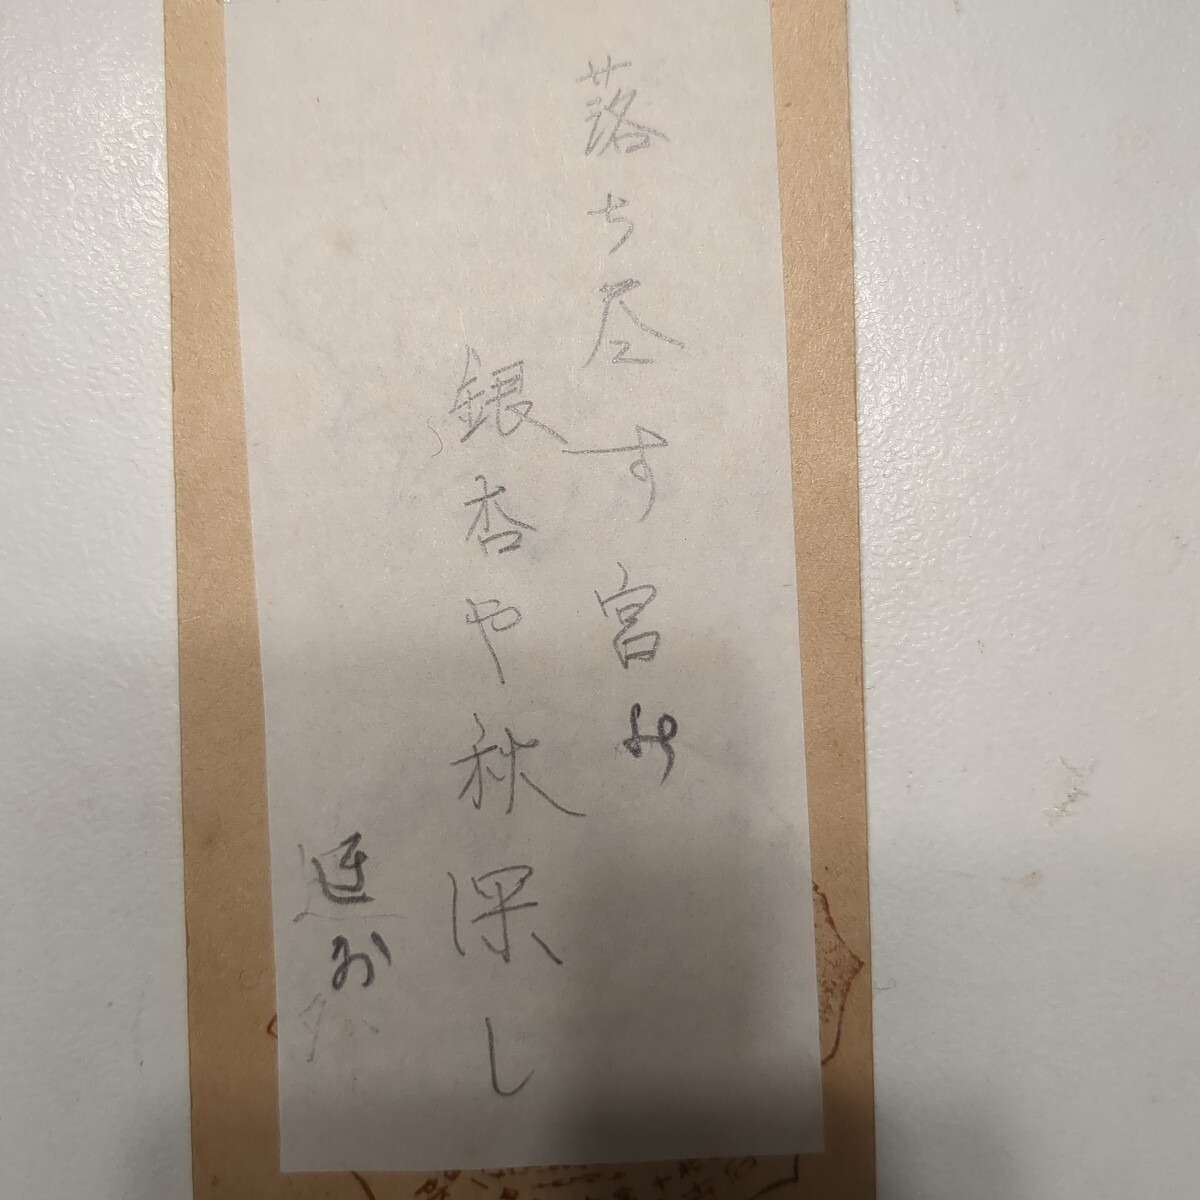 落ち尽す宮の
銀杏や秋深し